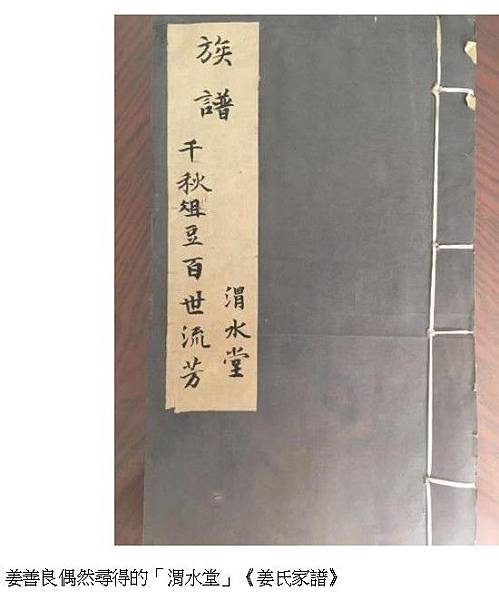 族譜
千秋俎豆百世流芳
渭水堂
姜善良偶然尋得的「渭水堂」《姜氏家譜》